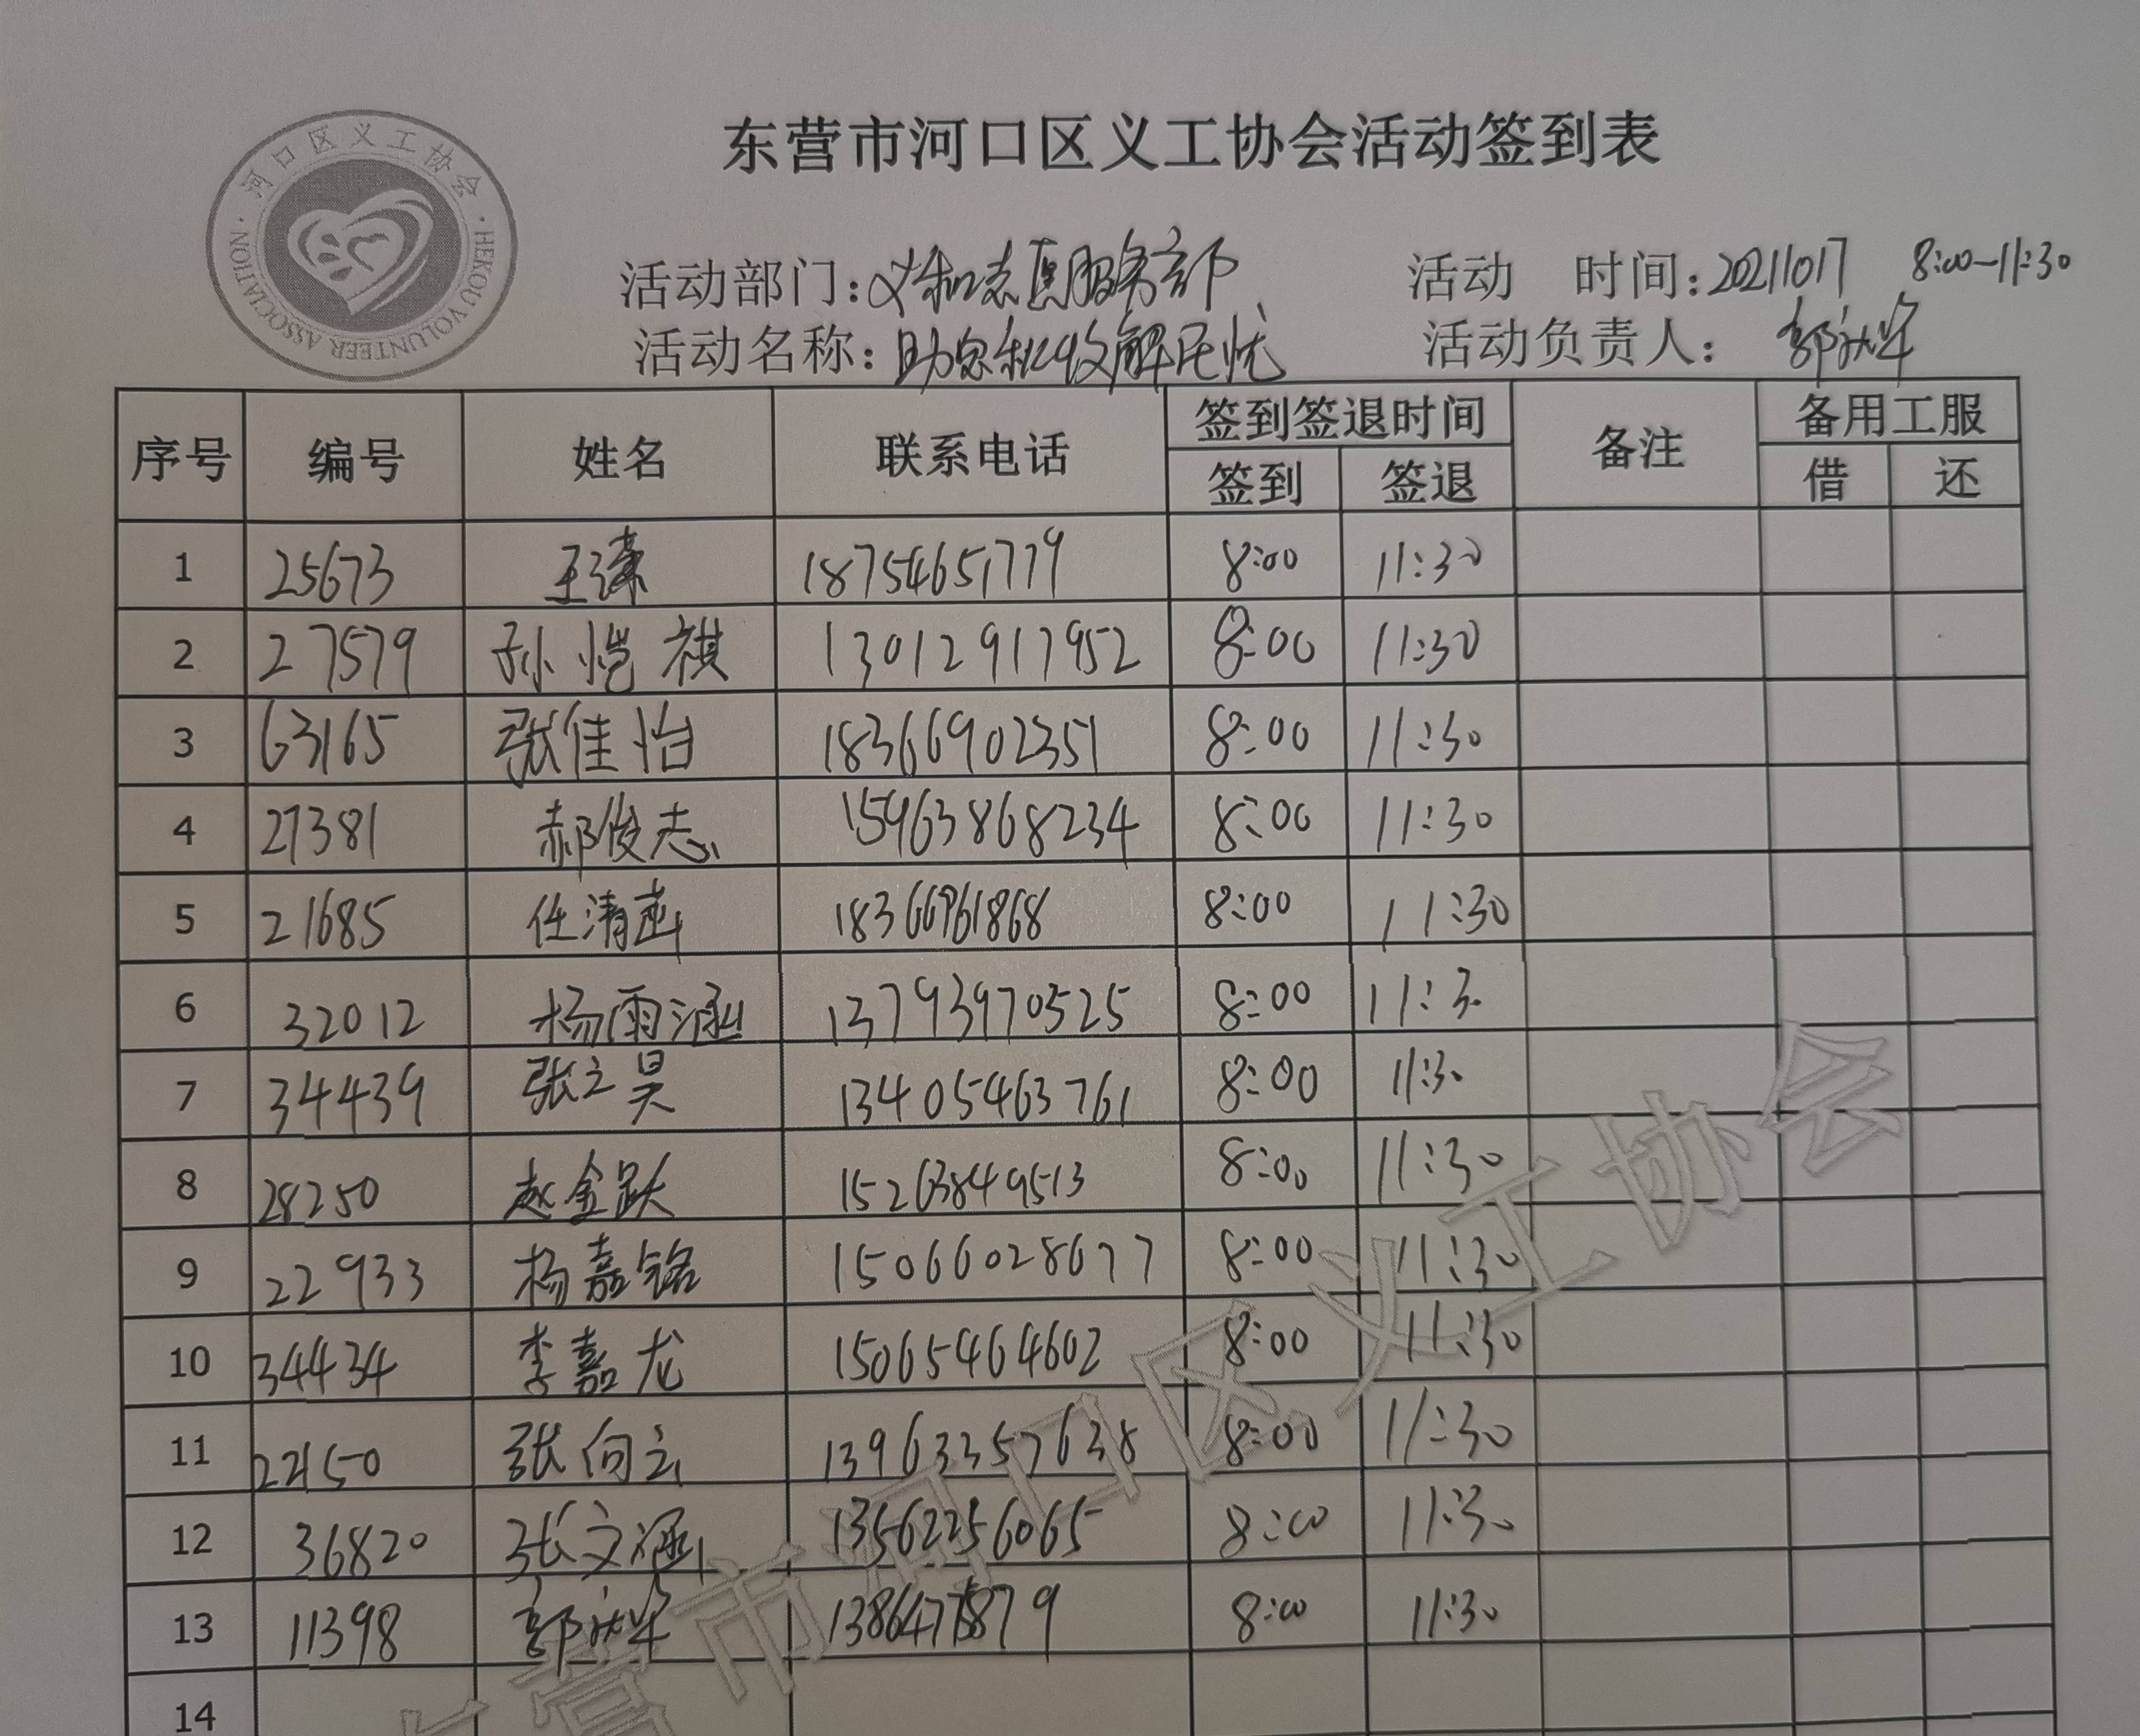 东营市河口区义工协会活动签到表
河口区义工协会
HEKOU VOLUNTEER ASSOCIATION
活动部门:义和志愿服务部 活动 时间:20211017 8:00-11:30
活动名称:助您秋收解民忧 活动负责人:
序号 编号 姓名 联系电话 签到签退时间 备注 备用工服
签到 签退 借 还
1 25673 王潇 18754651779 8:00 11:30
2 27579 孙恺祺 13012917952 8:00 11:30
3 63165 张佳怡 18366902351 8:00 11:30
4 27381 郝俊志 15963868234 8:00 11:30
5 21685 任清菡 18366961868 8:00 11:30
6 32012 杨雨涵 13793970525 8:00 11:30
7 34439 张立昊 13405463761 8:00 11:30
8 28250 赵金跃 15263849513 8:00 11:30
9 22933 杨嘉铭 15066028677 8:00 11:30
10 34434 李嘉龙 15065464602 8:00 11:30
11 22150 张向云 13963357638 8:00 11:30
12 36820 张文涵 13562256065 8:00 11:30
13 11398 8:00 11:30
14
东营市河口区义工协会